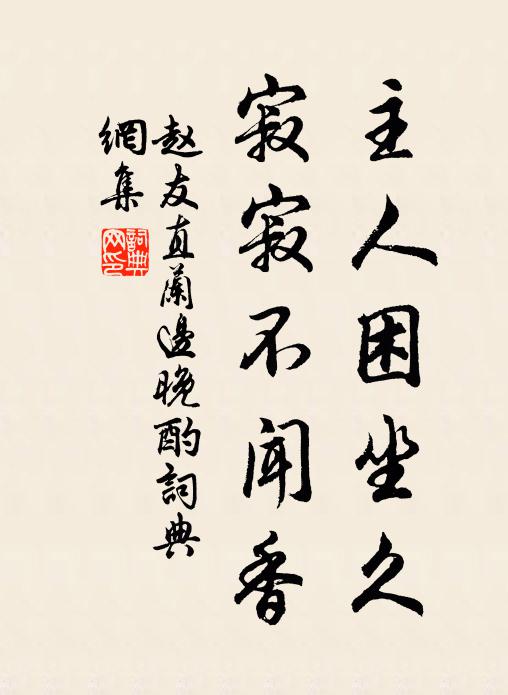 主人困坐久
寂寂不闻香
赵友直蘭邊晚酌詞典
網集
詞典
网印